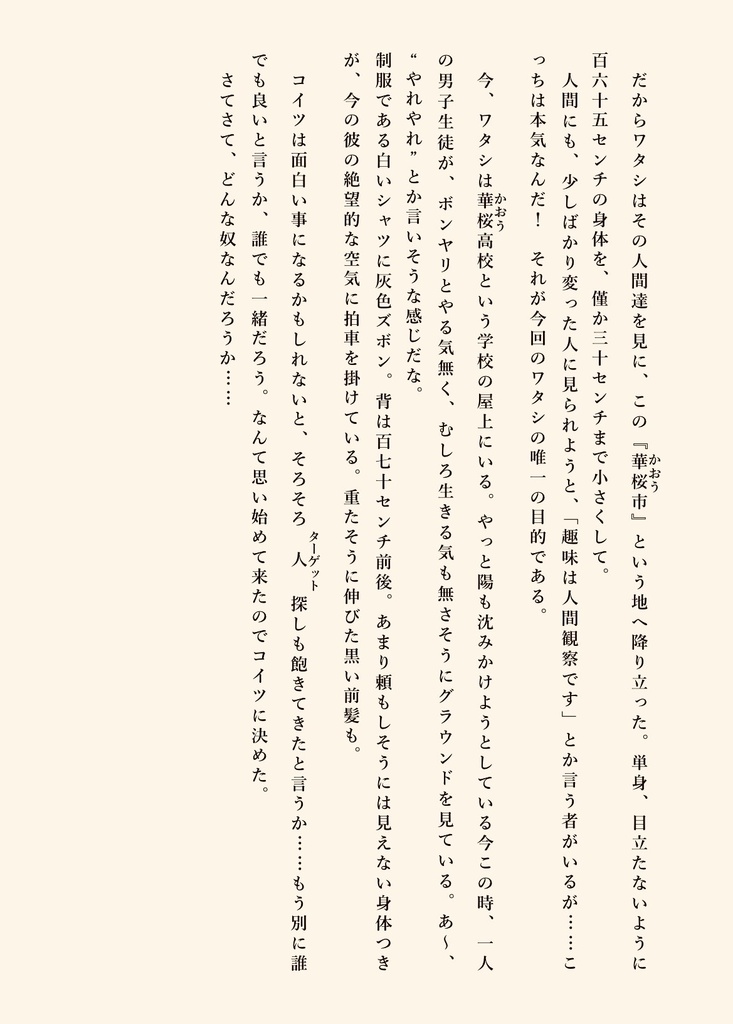 だからワタシはその人間達を見に、この『華桜市』という地へ降り立った。単身、目立たないように
かおう
百六十五センチの身体を、僅か三十センチまで小さくして。
人間にも、少しばかり変った人に見られようと、「趣味は人間観察です」とか言う者がいるが……こ
っちは本気なんだ！　それが今回のワタシの唯一の目的である。
今、ワタシは華桜高校という学校の屋上にいる。やっと陽も沈みかけようとしている今この時、一人
かおう
の男子生徒が、ボンヤリとやる気無く、むしろ生きる気も無さそうにグラウンドを見ている。あ～、
“やれやれ”とか言いそうな感じだな。
制服である白いシャツに灰色ズボン。背は百七十センチ前後。あまり頼もしそうには見えない身体つき
が、今の彼の絶望的な空気に拍車を掛けている。重たそうに伸びた黒い前髪も。
コイツは面白い事になるかもしれないと、そろそろ人探しも飽きてきたと言うか……もう別に誰
ターゲット
でも良いと言うか、誰でも一緒だろう。なんて思い始めて来たのでコイツに決めた。
さてさて、どんな奴なんだろうか……